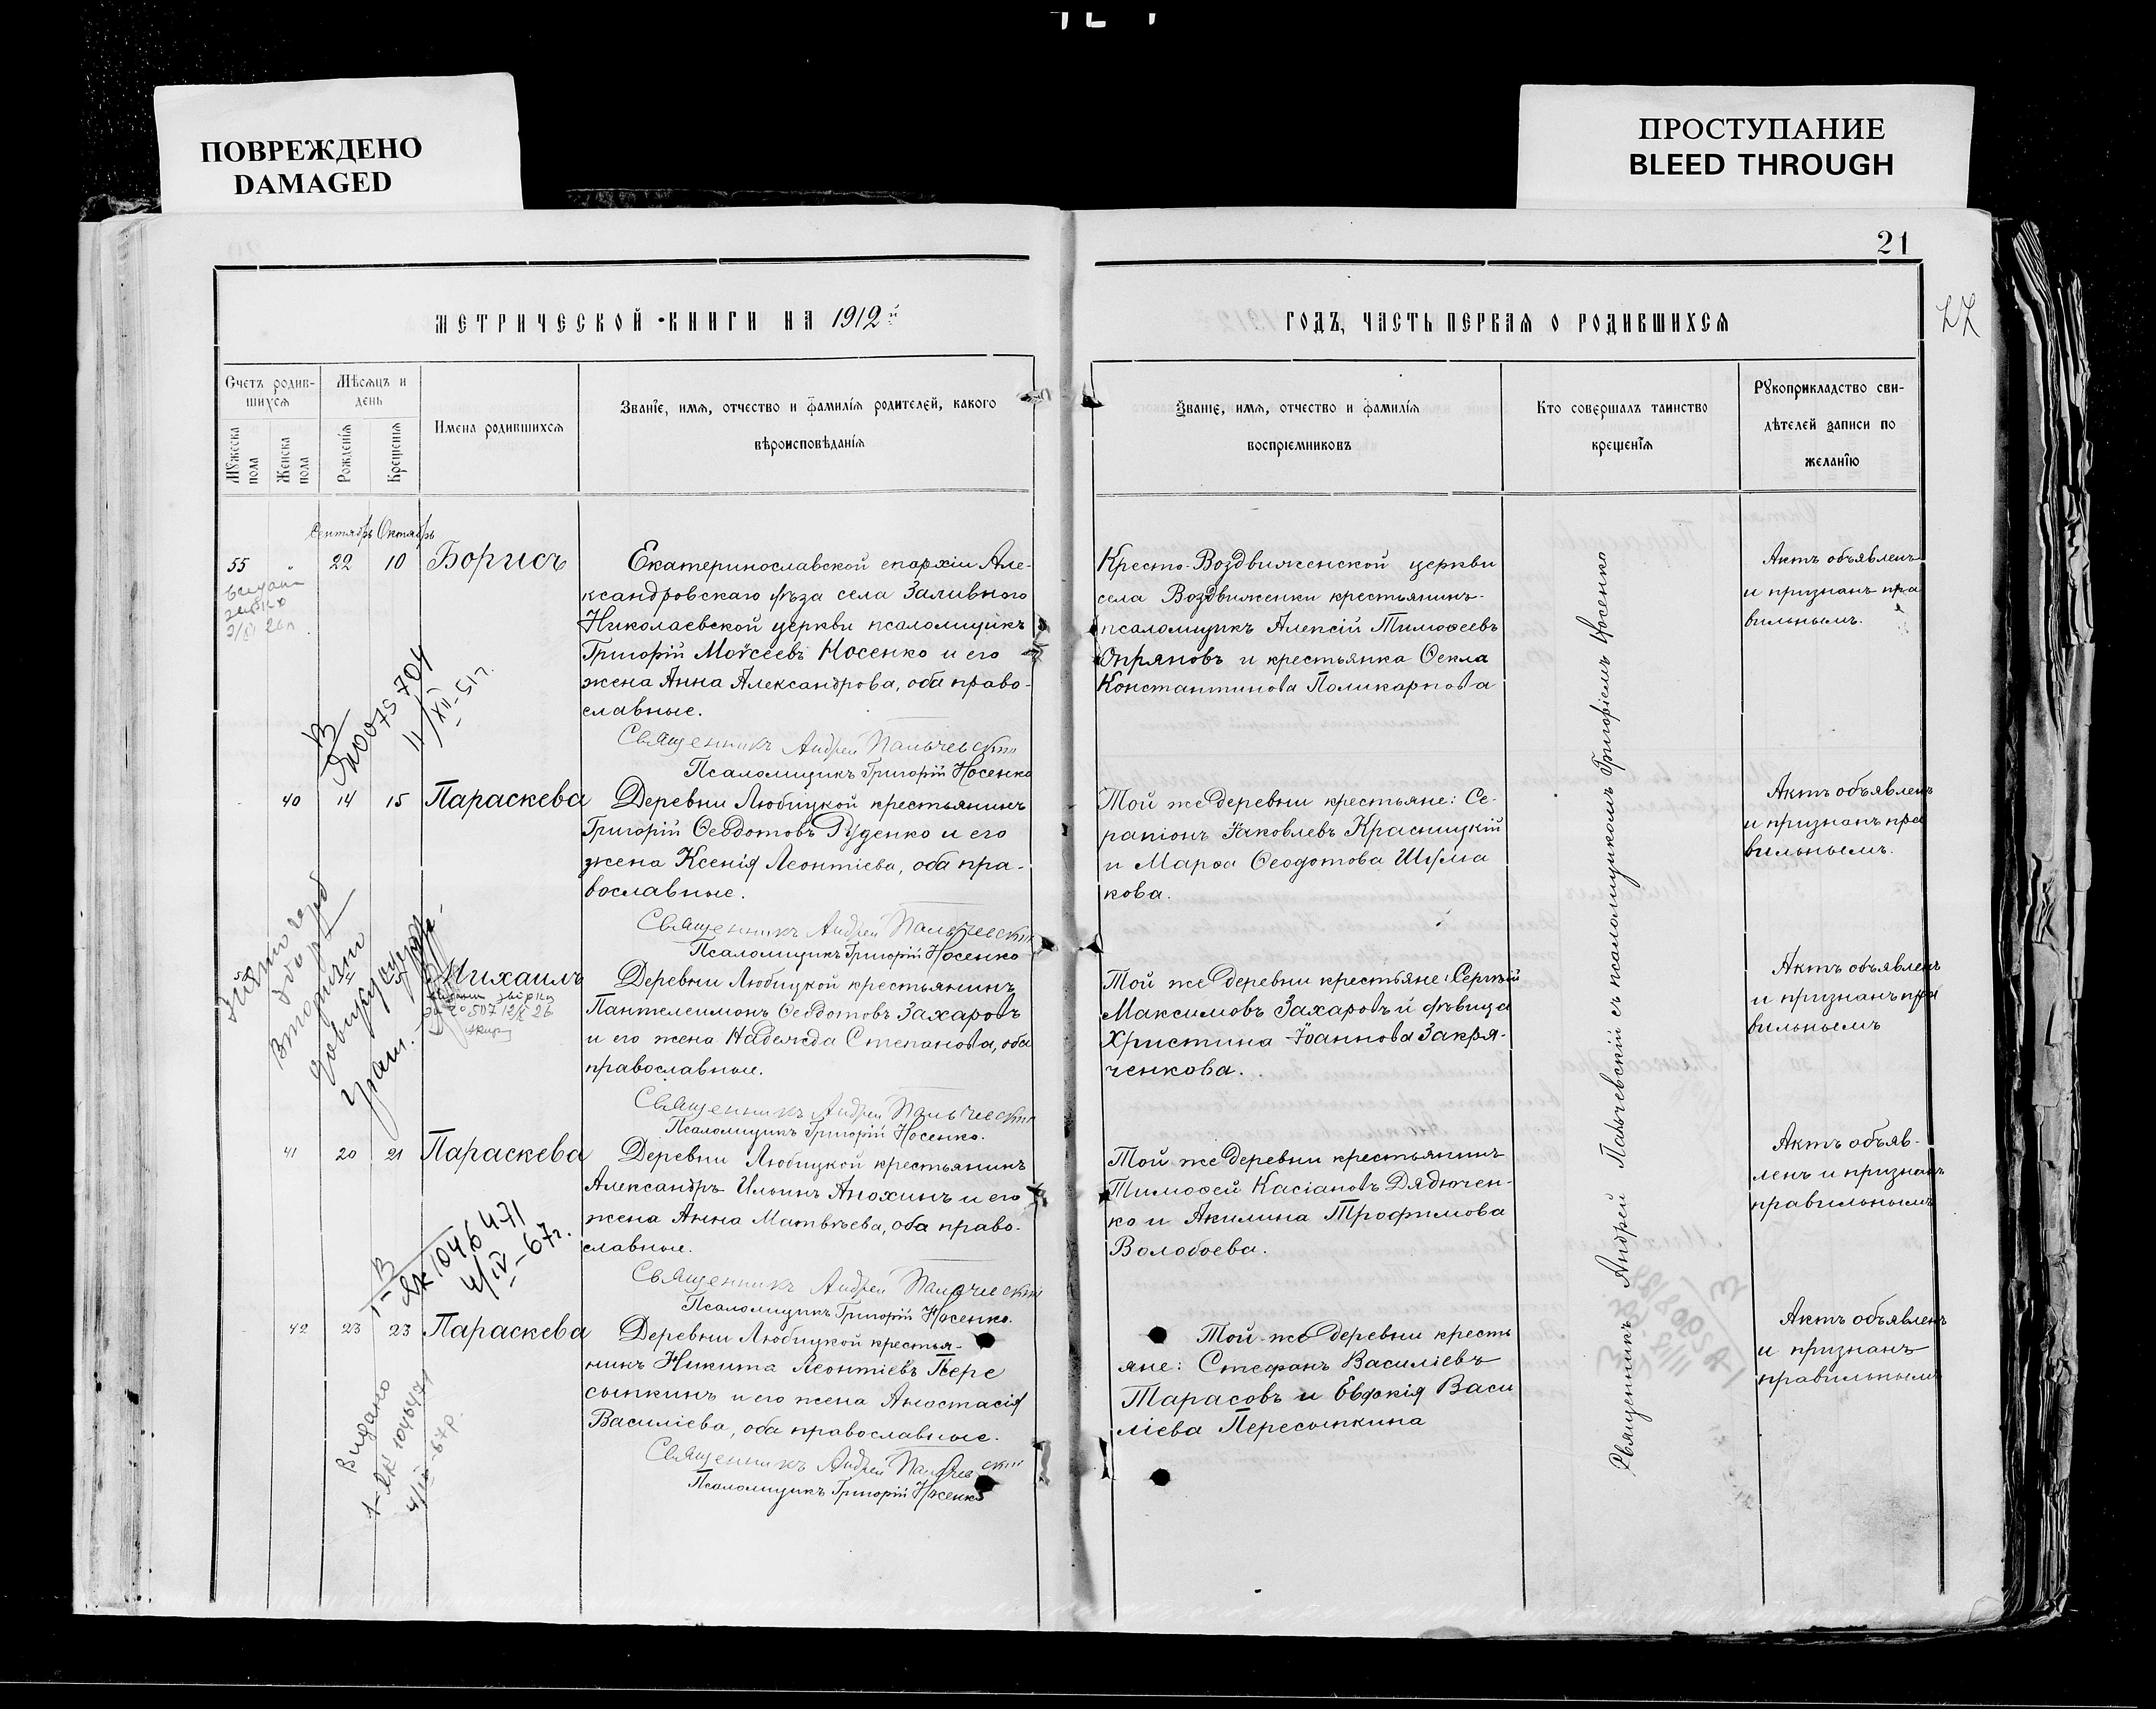 ПОВРЕЖДЕНО
DAMAGED
ПРОСТУПАНИЕ
BLEED THROUGH
21
МЕТРИЧЕСКОЙ КНИГИ НА 1912й
ГОДЪ, ЧАСТЬ ПЕРВАЯ О РОДИВШИХСЯ
Счетъ родив-
шихся
Мѣсяцъ и
день
Мужеска пола
Женска пола
Рожденія
Крещенія
Имена родившихся
Званіе, имя, отчество и фамилія родителей, какого
вѣроисповѣданія
Званіе, имя, отчество и фамилія
воспріемниковъ
Кто совершалъ таинство
крещенія
Рукоприкладство сви-
дѣтелей записи по
желанію
Сентябрь Октябрь
55 " 22 10 Борисъ
Екатеринославской епархіи Але-
ксандровскаго уѣза села Заливного
Николаевской церкви псаломщикъ
Григорій Моѵсеевъ Носенко и его
жена Анна Александрова, оба право-
славные.
Священникъ Андрей Пальчевскій
Псаломщикъ Григорій Носенко
Кресто-Воздвиженской церкви
села Воздвиженки крестьянинъ-
псаломщикъ Алексій Тимоѳеевъ
Опряновъ и крестьянка Ѳекла
Константинова Поликарпова
Актъ объявленъ
и признанъ пра
вильнымъ.
4/XII-51г.
40 14 15 Параскева
Деревни Любицкой крестьянинъ
Григорій Ѳеодотовъ Руденко и его
жена Ксенія Леонтіева, оба пра-
вославные.
Священникъ Андрей Пальчевскій
Псаломщикъ Григорій Носенко
Той же деревни крестьяне: Се-
рапіонъ Іаковлевъ Красницкій
и Марѳа Ѳеодотова Шума
кова.
Актъ объявленъ
и признанъ пра
вильнымъ.
Михаилъ
Деревни Любицкой крестьянинъ
Пантелеимонъ Ѳеодотовъ Захаровъ
и его жена Надежда Степанова, оба
православные.
Священникъ Андрей Пальчевскій
Псаломщикъ Григорій Носенко.
Той же деревни крестьяне: Сергѣй
Максимовъ Захаровъ и дѣвица
Христина Іоаннова Закря-
ченкова.
Актъ объявленъ
и признанъ пра
вильнымъ
41 20 21 Параскева
Деревни Любицкой крестьянинъ
Александръ Ильинъ Анохинъ и его
жена Анна Матвѣева, оба право-
славные.
Священникъ Андрей Пальчевскій
Псаломщикъ Григорій Носенко.
Той же деревни крестьянинъ
Тимоѳей Касіановъ Дядючен-
ко и Акилина Трофимова
Волобоева.
Актъ объяв-
ленъ и признанъ
правильнымъ
1046471
4/IV-67г.
42 23 23 Параскева
Деревни Любицкой крестья-
нинъ Никита Леонтіевъ Пере
сыпкинъ и его жена Анастасія
Василіева, оба православные.
Священникъ Андрей Пальчевскій
Псаломщикъ Григорій Носенко
Той же деревни кресть
яне: Стефанъ Василіевъ
Тарасовъ и Евдокія Васи
ліева Пересыпкина
Актъ объявленъ
и признанъ
правильнымъ
Видано
Священникъ Андрей Пальчевскій съ псаломщикомъ Григоріемъ Носенко